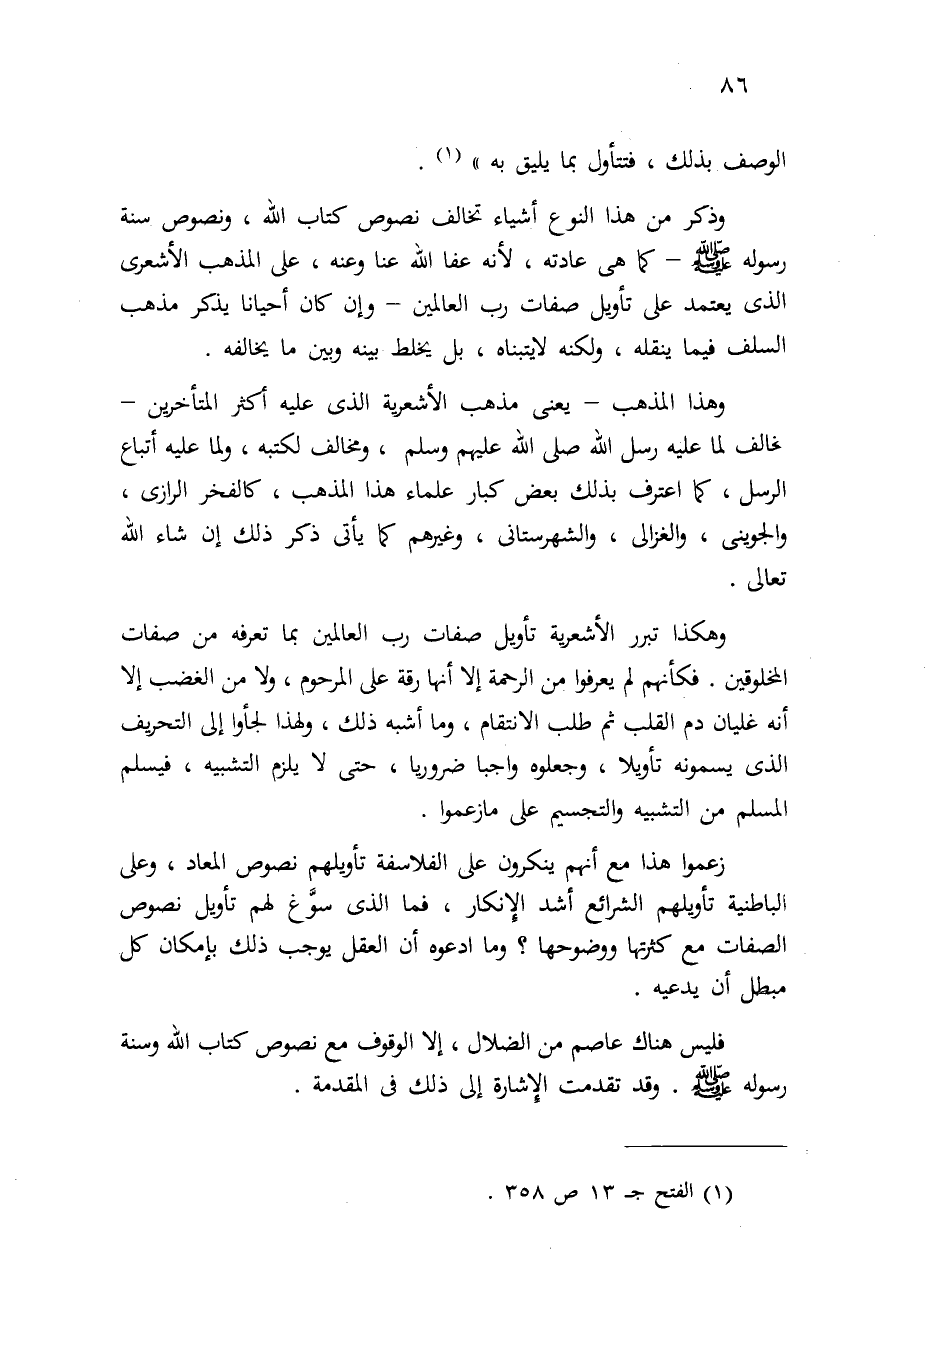 ٨٦
الوصف بذلك ، فتتأول بما يليق به » (١) .
وذكر من هذا النوع أشياء تخالف نصوص كتاب الله ، ونصوص سنة
رسوله ﷺ – كما هى عادته ، لأنه عفا الله عنا وعنه ، على المذهب الأشعرى
الذى يعتمد على تأويل صفات رب العالمين – وإن كان أحيانا يذكر مذهب
السلف فيما ينقله ، ولكنه لايتبناه ، بل يخلط بينه وبين ما يخالفه .
وهذا المذهب – يعنى مذهب الأشعرية الذى عليه أكثر المتأخرين –
مخالف لما عليه رسل الله صلى الله عليهم وسلم ، ومخالف لكتبه ، ولما عليه أتباع
الرسل ، كما اعترف بذلك بعض كبار علماء هذا المذهب ، كالفخر الرازى ،
والجوينى ، والغزالى ، والشهرستانى ، وغيرهم كما يأتى ذكر ذلك إن شاء الله
تعالى .
وهكذا تبرر الأشعرية تأويل صفات رب العالمين بما تعرفه من صفات
المخلوقين . فكأنهم لم يعرفوا من الرحمة إلا أنها رقة على المرحوم ، ولا من الغضب إلا
أنه غليان دم القلب ثم طلب الانتقام ، وما أشبه ذلك ، ولهذا لجأوا إلى التحريف
الذى يسمونه تأويلا ، وجعلوه واجبا ضروريا ، حتى لا يلزم التشبيه ، فيسلم
المسلم من التشبيه والتجسيم على مازعموا .
زعموا هذا مع أنهم ينكرون على الفلاسفة تأويلهم نصوص المعاد ، وعلى
الباطنية تأويلهم الشرائع أشد الإنكار ، فما الذى سوَّغ لهم تأويل نصوص
الصفات مع كثرتها ووضوحها ؟ وما ادعوه أن العقل يوجب ذلك بإمكان كل
مبطل أن يدعيه .
فليس هناك عاصم من الضلال ، إلا الوقوف مع نصوص كتاب الله وسنة
رسوله ﷺ . وقد تقدمت الإشارة إلى ذلك فى المقدمة .
(١) الفتح جـ ١٣ ص ٣٥٨ .